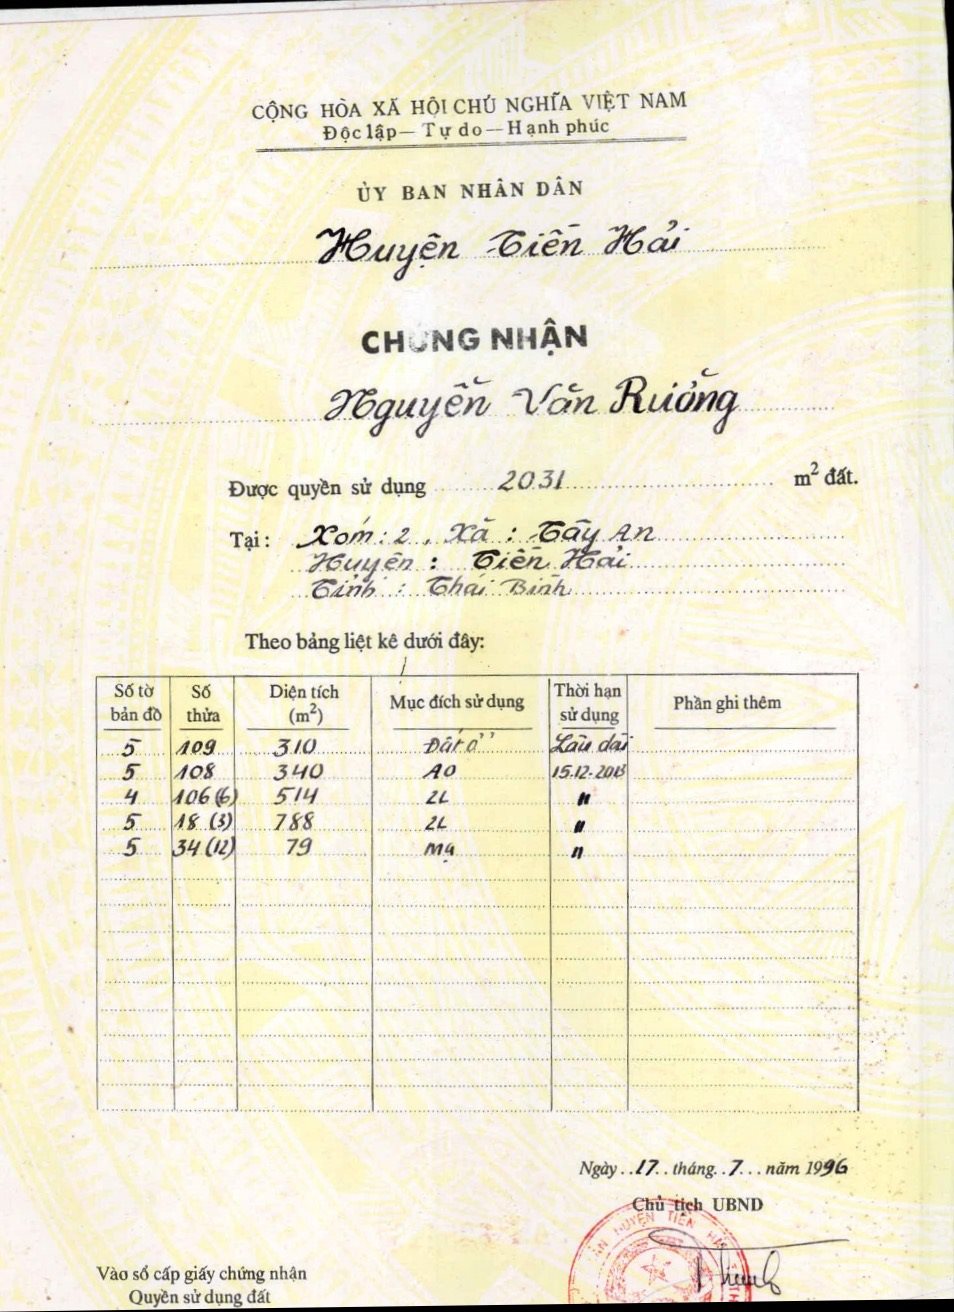 CỘNG HÒA XÃ HỘI CHỦ NGHĨA VIỆT NAM
Độc lập — Tự do — Hạnh phúc
ỦY BAN NHÂN DÂN
Huyện Tiền Hải
CHỨNG NHẬN
Nguyễn Văn Rưởng
Được quyền sử dụng 2031 m² đất.
Tại: Xóm: 2, Xã: Tây An
Huyện: Tiền Hải
Tỉnh: Thái Bình
Theo bảng liệt kê dưới đây:
Số tờ bản đồ | Số thửa | Diện tích (m²) | Mục đích sử dụng | Thời hạn sử dụng | Phần ghi thêm
5 | 109 | 310 | Đất ở | Lâu dài
5 | 108 | 340 | AO | 15.12.2013
4 | 106 (6) | 514 | 2L | "
5 | 18 (3) | 788 | 2L | "
5 | 34 (12) | 79 | Mạ | "
Ngày 17 tháng 7 năm 1996
Chủ tịch UBND
HUYỆN TIỀN HẢI
Vào sổ cấp giấy chứng nhận
Quyền sử dụng đất